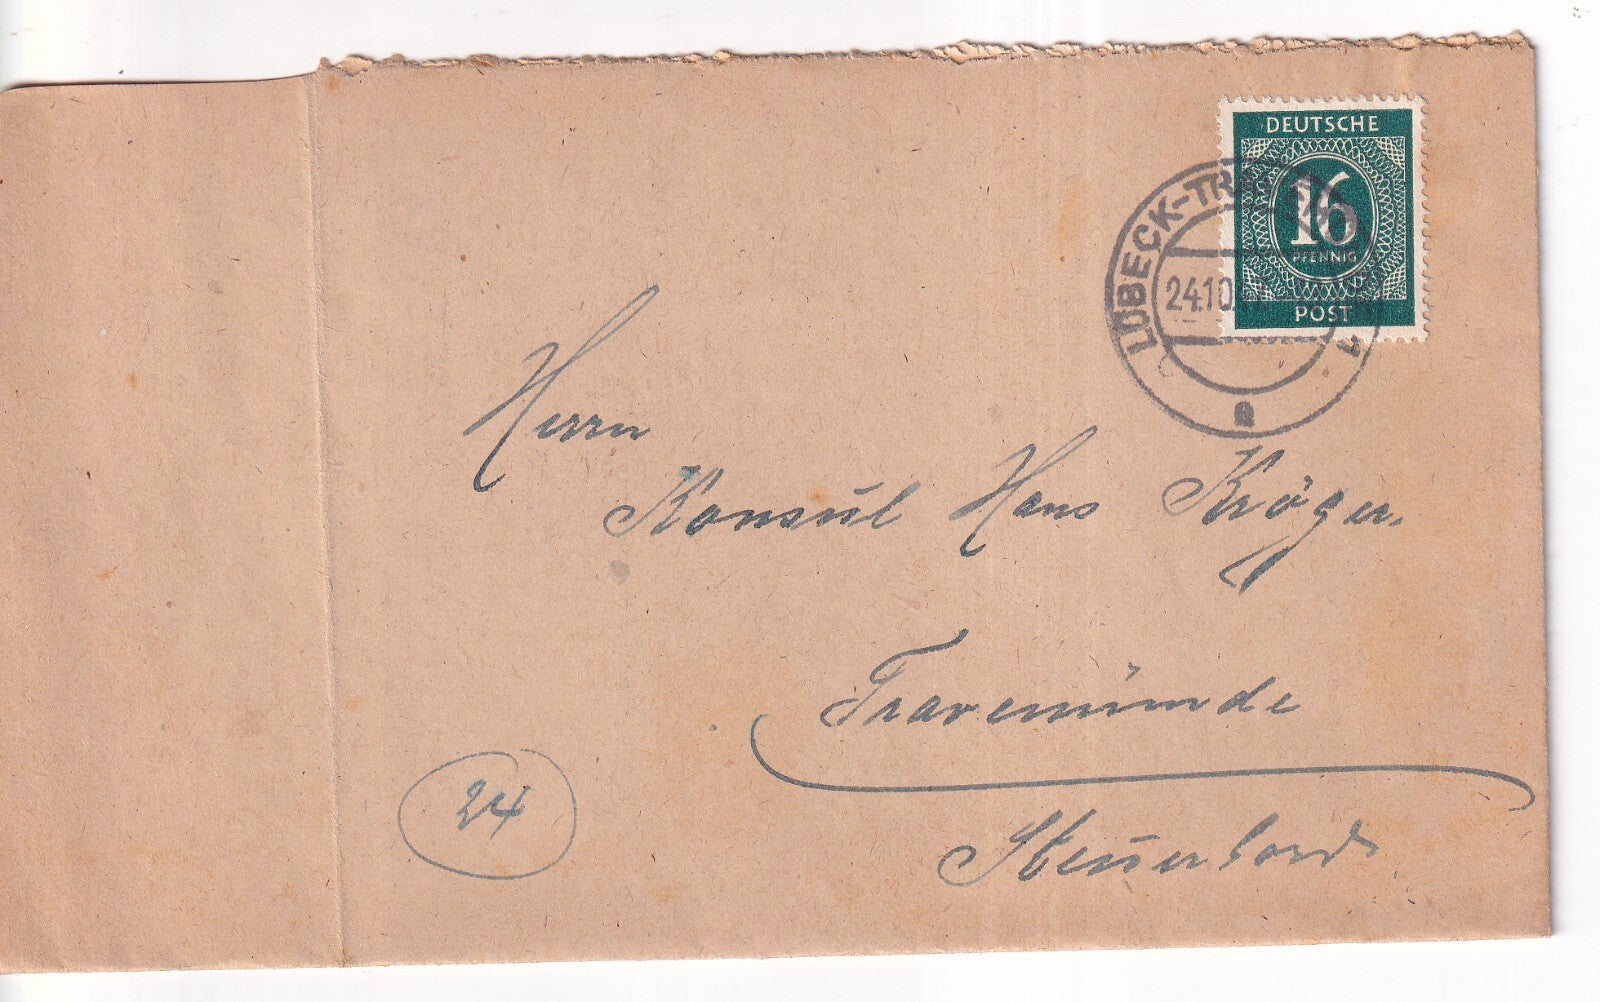 DEUTSCHE
16
PFENNIG
POST
LÜBECK-TR
24.10.
a
Herrn
Konsul Hans Kröger.
Travemünde
Steuerbord
24